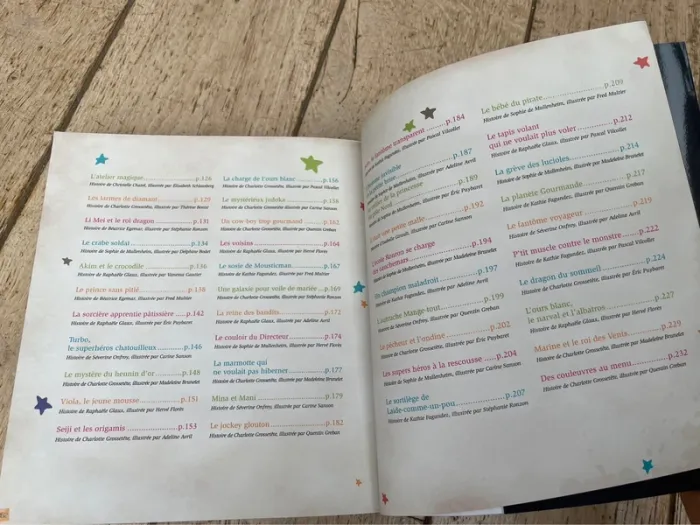 L'atelier magique ... p.126
Histoire de Christelle Chatel, illustrée par Elisabeth Schlossberg
Les larmes de diamant ... p.129
Histoire de Charlotte Grossetête, illustrée par Thérèse Bonté
Li Mei et le roi dragon ... p.131
Histoire de Béatrice Egémar, illustrée par Stéphanie Ronzon
Le crabe soldat ... p.134
Histoire de Charlotte Grossetête, illustrée par Delphine Bodet
Akim et le crocodile ... p.136
Histoire de Raphaëlle Glaux, illustrée par Vanessa Gautier
Le prince sans pitié ... p.138
Histoire de Béatrice Egémar, illustrée par Fred Multier
La sorcière apprentie pâtissière ... p.142
Histoire de Raphaëlle Glaux, illustrée par Éric Puybaret
Turbo,
le superhéros chatouilleux ... p.146
Histoire de Séverine Onfroy, illustrée par Carine Sanson
Le mystère du hennin d'or ... p.148
Histoire de Charlotte Grossetête, illustrée par Madeleine Brunelet
Viola, le jeune mousse ... p.151
Histoire de Raphaëlle Glaux, illustrée par Hervé Florès
Seiji et les origamis ... p.153
Histoire de Charlotte Grossetête, illustrée par Adeline Avril
La charge de l'ours blanc ... p.156
Histoire de Charlotte Grossetête, illustrée par Pascal Vilcollet
Le mystérieux judoka ... p.158
Histoire de Charlotte Grossetête, illustrée par Carine Sanson
Un cow-boy trop gourmand ... p.162
Histoire de Charlotte Grossetête, illustrée par Quentin Gréban
Les voisins ... p.164
Histoire de Raphaëlle Glaux, illustrée par Hervé Florès
Le sosie de Mousticman ... p.167
Histoire de Kathie Fagundez, illustrée par Fred Multier
Une galaxie pour voile de mariée ... p.169
Histoire de Charlotte Grossetête, illustrée par Stéphanie Ronzon
La reine des bandits ... p.172
Histoire de Raphaëlle Glaux, illustrée par Adeline Avril
Le couloir du Directeur ... p.174
Histoire de Sophie de Mullenheim, illustrée par Hervé Florès
La marmotte qui
ne voulait pas hiberner ... p.177
Histoire de Charlotte Grossetête, illustrée par Madeleine Brunelet
Mina et Mani ... p.179
Histoire de Séverine Onfroy, illustrée par Carine Sanson
Le jockey glouton ... p.182
Histoire de Charlotte Grossetête, illustrée par Quentin Gréban
transparent ... p.184
Fagundez, illustrée par Pascal Vilcollet
p.187
Histoire de Sophie de Mullenheim, illustrée par Adeline Avril
de la princesse ... p.189
de Sophie de Mullenheim, illustrée par Éric Puybaret
p.192
illustrée par Carine Sanson
se charge
p.194
de Sophie de Mullenheim, illustrée par Madeleine Brunelet
champion maladroit ... p.197
Histoire de Kathie Fagundez, illustrée par Adeline Avril
L'autruche Mange-tout ... p.199
Histoire de Séverine Onfroy, illustrée par Quentin Gréban
Le pêcheur et l'ondine ... p.202
Histoire de Charlotte Grossetête, illustrée par Éric Puybaret
Les supers héros à la rescousse ... p.204
Histoire de Sophie de Mullenheim, illustrée par Carine Sanson
Le sortilège de
Laide-comme-un-pou ... p.207
Histoire de Kathie Fagundez, illustrée par Stéphanie Ronzon
Le bébé du pirate ... p.209
Histoire de Sophie de Mullenheim, illustrée par Fred Multier
Le tapis volant
qui ne voulait plus voler ... p.212
Histoire de Raphaëlle Glaux, illustrée par Pascal Vilcollet
La grève des lucioles ... p.214
Histoire de Sophie de Mullenheim, illustrée par Madeleine Brunelet
La planète Gourmande ... p.217
Histoire de Kathie Fagundez, illustrée par Quentin Gréban
Le fantôme voyageur ... p.219
Histoire de Séverine Onfroy, illustrée par Adeline Avril
P'tit muscle contre le monstre ... p.222
Histoire de Raphaëlle Glaux, illustrée par Pascal Vilcollet
Le dragon du sommeil ... p.224
Histoire de Charlotte Grossetête, illustrée par Éric Puybaret
L'ours blanc,
le narval et l'albatros ... p.227
Histoire de Raphaëlle Glaux, illustrée par Madeleine Brunelet
Marine et le roi des Vents ... p.229
Histoire de Charlotte Grossetête, illustrée par Carine Sanson
Des couleuvres au menu ... p.232
Histoire de Charlotte Grossetête, illustrée par Quentin Gréban